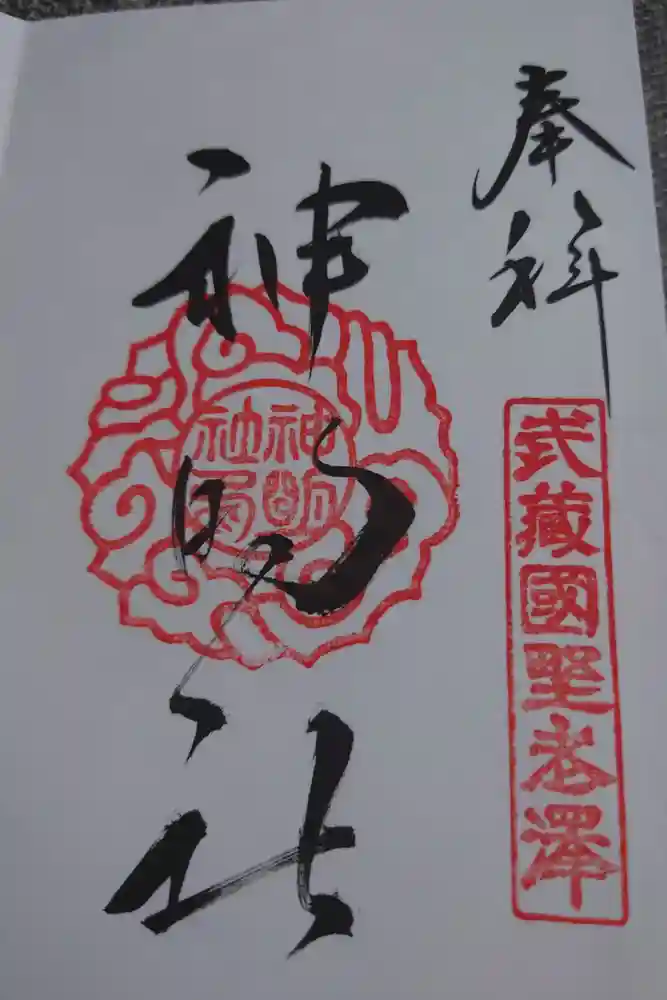 奉拝
武藏國野老澤
神明社
神明社